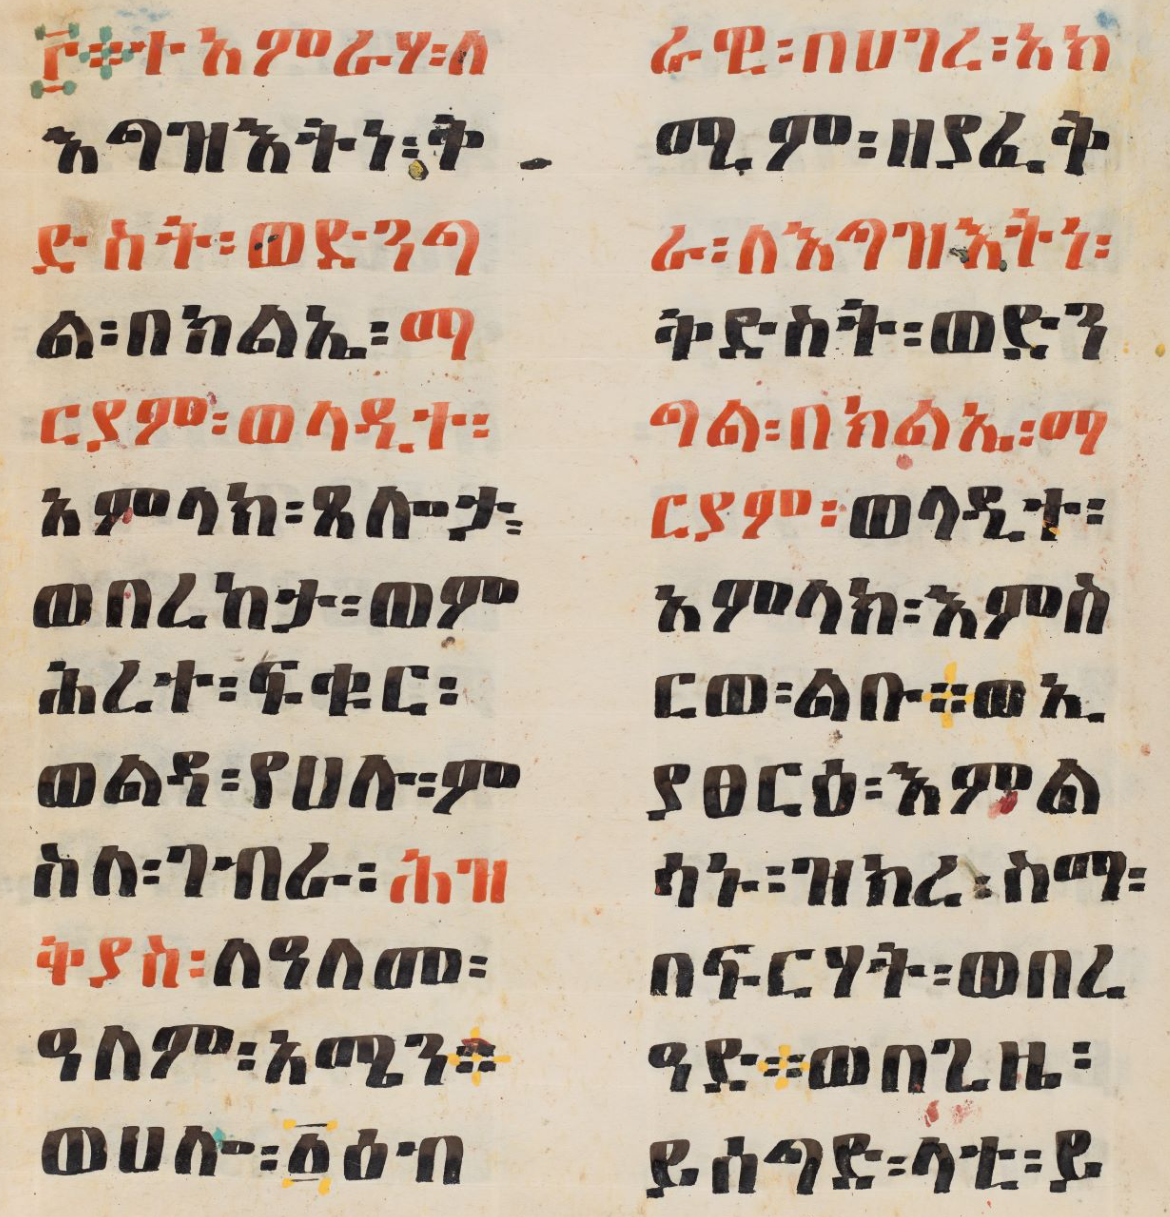 ፲፡ ተአምሪሃ፡ለ
እግዝእትነ፡ቅ
ድስት፡ወድንግ
ል፡በክልኤ፡ማ
ርያም፡ወላዲተ፡
አምላክ፡ጸሎታ፡
ወበረከታ፡ወም
ሕረተ፡ፍቁር፡
ወልዳ፡የሀሉ፡ም
ስለ፡ገብራ፡ሕዝ
ቅያስ፡ለዓለመ፡
ዓለም፡አሜን፨
ወሀሎ፡፩ዕብ
ራዊ፡በሀገረ፡አክ
ሚም፡ዘያፈቅ
ራ፡ለእግዝእትነ፡
ቅድስት፡ወድን
ግል፡በክልኤ፡ማ
ርያም፡ወላዲተ፡
አምላክ፡እምስ
ርወ፡ልቡ፨ወኢ
ያፀርዕ፡እምል
ሳኑ፡ዝክረ፡ስማ፡
በፍርሃት፡ወበረ
ዓድ፨ወበጊዜ፡
ይሰግድ፡ላቲ፡ይ